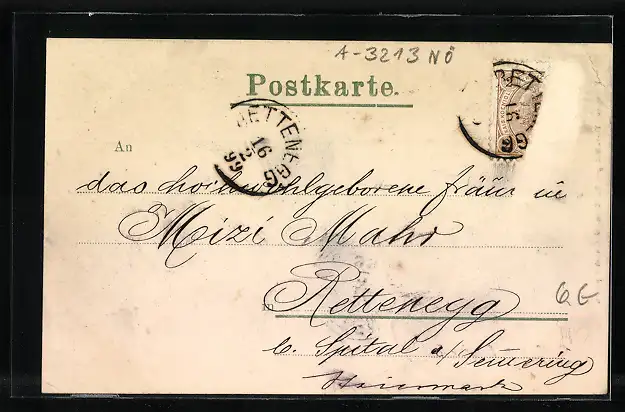 A-3213 NÖ
Postkarte.
RETTENEGG
16 2 99
RETTENEGG
16
An
das hochwohlgeborene fräul in
Mizi Mahr
in Rettenegg
6 E
b. Spital a/ Semmering
Steiermark